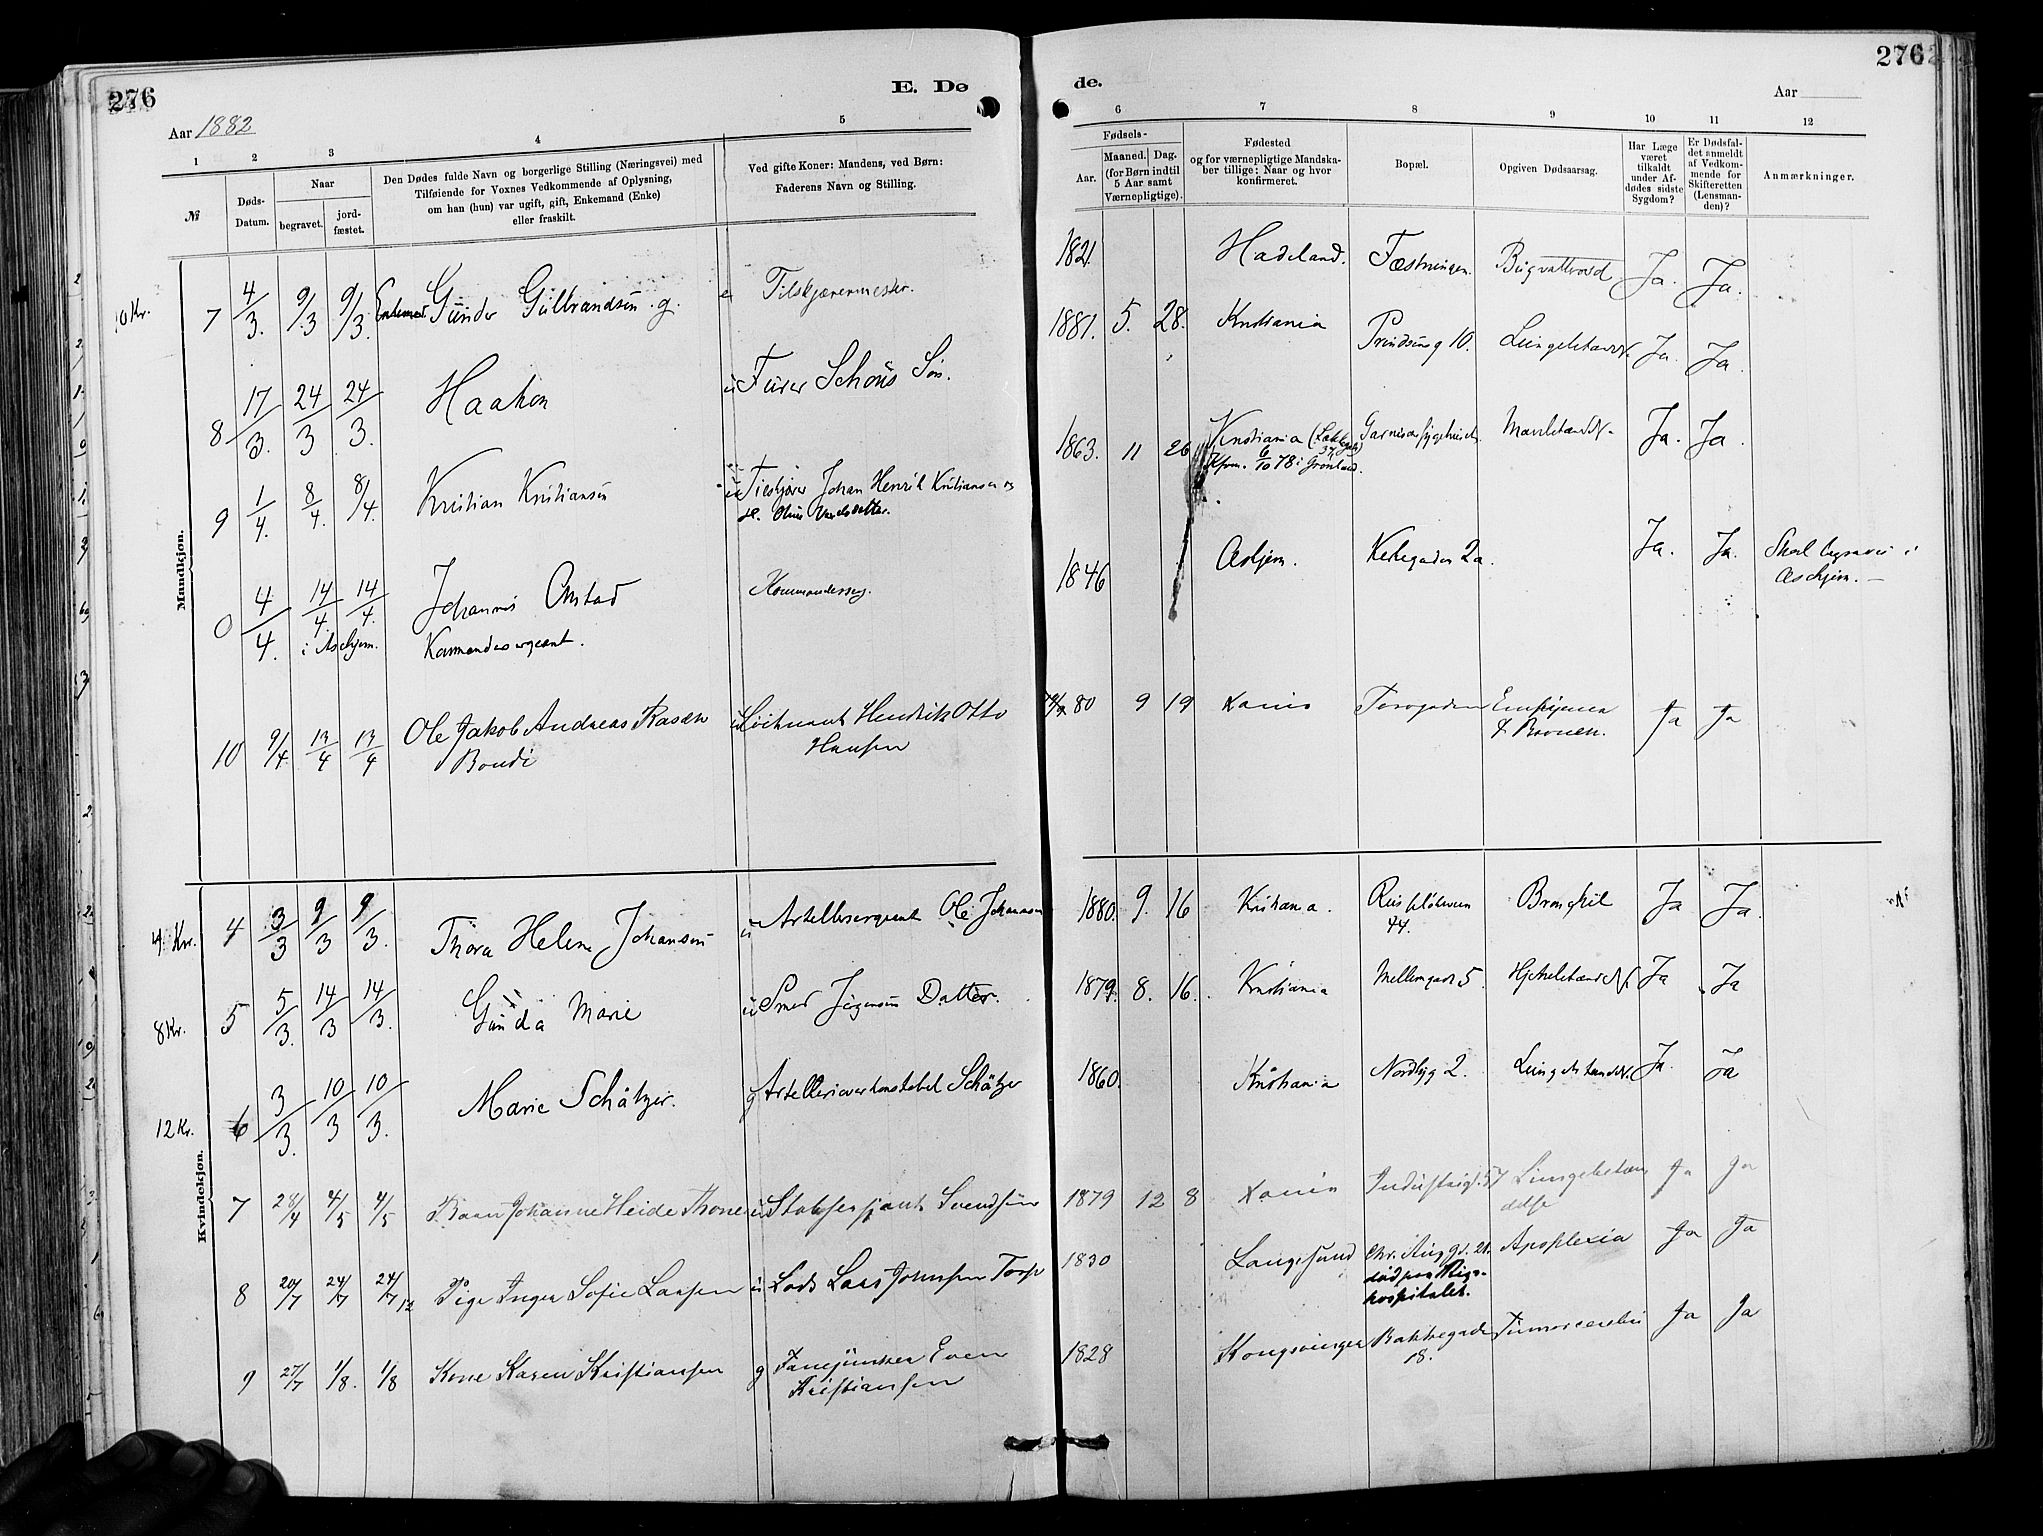 276
E. Dø
de.
276
Aar 1882
Aar
1 2 3 4 5
6 7 8 9 10 11 12
№
Døds-
Datum.
Naar
begravet.
jord-
fæstet.
Den Dødes fulde Navn og borgerlige Stilling (Næringsvei) med
Tilføiende for Voxnes Vedkommende af Oplysning,
om han (hun) var ugift, gift, Enkemand (Enke)
eller fraskilt.
Ved gifte Koner: Mandens, ved Børn:
Faderens Navn og Stilling.
Fødsels-
Aar.
Maaned. Dag.
(for Børn indtil
5 Aar samt
Værnepligtige).
Fødested
og for værnepligtige Mandska-
ber tillige: Naar og hvor
konfirmeret.
Bopæl.
Opgiven Dødsaarsag.
Har Læge
været
tilkaldt
under Af-
dødes sidste
Sygdom?
Er Dødsfal-
det anmeldt
af Vedkom-
mende for
Skifteretten
(Lensman-
den)?
Anmærkninger.
Mandkjøn.
7 4/3. 9/3 9/3. Gunder Gulbrandsen g. 1821. Hadeland. Fæstningen. Ja. Ja.
8 17/3. 24/3 24/3. Haakon u Furer Schous Søn. 1881. 5. 28. Kristiania Prindsensg 10. Lungebetændels. Ja. Ja.
9 1/4. 8/4. 8/4. Kristian Kristiansen u Johan Henrik Kristiansen og
1863. 11 26 Kristiania Garnisonssygehuset. Ja. Ja.
Kfrm. 6/10 78 i Grønland.
0 4/4. 14/4. 14/4. Johannes Onstad
i Aschjem. Kommandersergeant.
1846 Askjem. Kirkegaden 2a. Ja. Ja. Skal begraves i
Aschjem.
10 9/4 13/4 13/4 Ole Jakob Andreas u Løitnant Hendrik Otto
Hansen
80 9 19 Xania Ja Ja
Kvindekjøn.
4 Kr. 4 3/3 9/3 9/3. Thora Helene Johansen u Artellersergeant Ole Johansen 1880. 9. 16 Kristiania. Ja Ja.
44.
8 Kr. 5 5/3. 14/3 14/3. Gunda Marie u Smed Jørgensens Datter. 1879. 8. 16. Kristiania Mellemgade 5. Ja Ja
12 Kr. 6 3/3. 10/3 10/3. Marie Schätzer. g Artellerioverkonstabel Schätzer 1860. Kristiania Nordbyg 2. Ja. Ja
7 28/4 4/5 4/5 Barn Johanne Heide Thone u Svendsen 1879 12 8 Xania Industrig. 57 Lungebetæn
delse Ja Ja
8 20/7 24/7 24/7 Pige Inger Sofie Larsen u Lods Lars Johnsen Torp 1830 Langesund Apoplexia Ja Ja
død paa Rigs-
hospitalet.
9 27/7 1/8. 1/8 Kone Karen Kristiansen g Fanejunker Even
Kristiansen
1828 Kongsvinger Bakkegade
18. Tumor cerebri Ja Ja